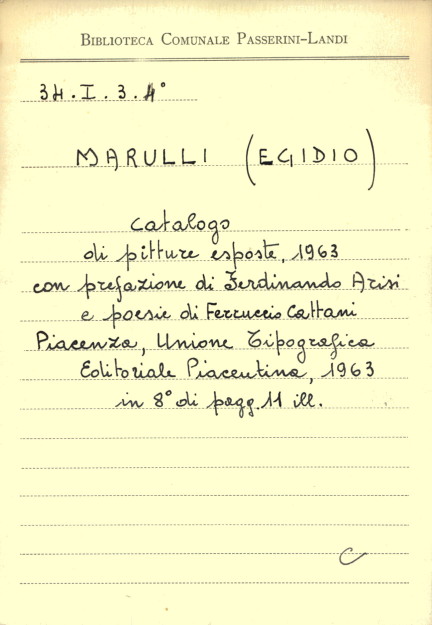 BIBLIOTECA COMUNALE PASSERINI-LANDI
3H.I.3.4°
MARULLI (EGIDIO)
catalogo
di pitture esposte, 1963
con prefazione di Ferdinando Arisi
e poesie di Ferruccio Cattani
Piacenza, Unione Tipografica
Editoriale Piacentina, 1963
in 8° di pagg. 11 ill.
C